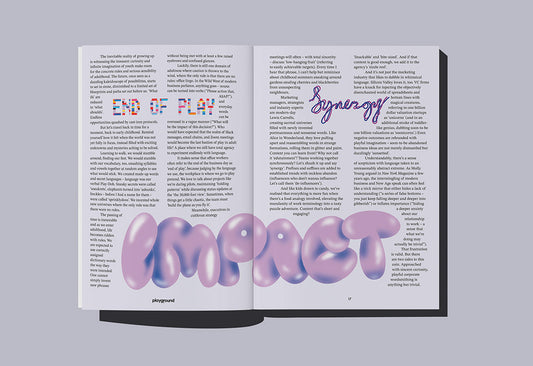 The inevitable reality of growing up
is witnessing the innocent curiosity and
infinite imagination of youth make room
for the concrete rules and serious sensibility
of adulthood. The future, once seen as a
dazzling kaleidoscope of possibilities, starts
to set in stone, diminished to a limited set of
blueprints and paths set out before us. What
we are
reduced
to what
should
opportunities quashed by one-note protocol.
But let's travel back in time for a
moment, back to early childhood. Remind
yourself how it felt when the world was not
yet fully in focus, instead filled with exciting
mysteries aching to be solved.
Learning to walk is learning to play
around, finding our feet. We would stumble
with our vocabulary, too, smashing syllables
and vowels together at random urges to see
what would stick. We created made-up words
and secret languages – language was our
verbal Play-Doh. Sneaky secrets were called
everyone farted into 'fahrarts',
words
were called We invented whole
new universes where the only rule was that
there were no rules.
The passing of
time is inexorable
and as we enter
adulthood, life
becomes ridden
with rules. We
are expected to
use correctly
assigned
dictionary words
the way they
were intended.
One cannot
simply invent
new phrases
without being met with at least a few raised
eyebrows and confused glances.
Luckily, there is still one domain of
adulthood where caution is thrown to the
wind, where the only rule is that there are no
rules: office lingo. In the Wild West of modern
business parlance, anything goes – nouns
can be turned into verbs
ASAP!')
and
everyday
words
can be
END OF PLAY
in a vague manner ('What will
be the impact of this decision?'). Why
would have expected that the worlds of Slack
messages, email chains, and Zoom meetings
would become the last bastion of play in adult
life? A place where we still have total agency
to experiment wildly with, no matter how
It makes sense that office workers
often refer to the end of the business day as
'end of play'. Because judging by the language
we use, the workplace is where we go to play
pretend. We love to talk about projects like
we're doing pilots, maintaining 'holding
patterns' while discussing status updates at
the '30,000-foot view'. Sometimes, when
things get a little chaotic, the team must
'build the plane as you fly it'.
Meanwhile, executives in
cutthroat strategy
meetings will often – with total sincerity
– discuss 'low-hanging fruit' (referring
to easily achievable targets). Every time I
hear that phrase, I can't help but reminisce
about childhood mornings sneaking around
gardens stealing cherries and blackberries
from unsuspecting
neighbours.
Marketing
managers, strategists
and industry experts
are modern-day
Lewis Carrolls,
creating surreal universes
filled with newly invented
portmanteaus and nonsense words. Like
Alice in Wonderland, they love pulling
apart and reassembling words in strange
formations, rolling them in glitter and paint.
Content you can learn from? Why not call
it 'edutainment'? Teams working together
synchronously? Let's shoosh it up and say
'synergy'. Prefixes and suffixes are added to
established trends with reckless abandon
(Influencers who don't wanna influence?
Let's call them 'de-influencers').
And like kids drawn to candy, we've
realised that everything is more fun when
there's a food analogy involved, elevating the
mundanity of work terminology into a tasty
puzzle adventure. Content that's short and
engaging?
Synergy
'Snackable' and 'bite-sized'. And if that
content is good enough, we add it to the
agency's 'sizzle reel'.
And it's not just the marketing
industry that likes to dabble in whimsical
language. Silicon Valley loves it, too. VC firms
have a knack for injecting the objectively
disenchanted world of spreadsheets and
bottom lines with
magical creatures,
referring to one billion
dollar valuation startups
as 'unicorns' (and in an
additional stroke of riddler-
like genius, dubbing soon-to-be
one billion valuations as 'soonicorns'). Even
negative outcomes are rebranded with
playful imagination – soon-to-be-abandoned
business ideas are not merely dismissed but
dazzlingly 'sunsetted'.
Understandably, there's a sense
of scepticism with language taken to an
unreasonably abstract extreme. As Molly
Young argued in New York Magazine a few
years ago, the intermingling of modern
business and New Age speak can often feel
like a strict mirror that either hides a lack of
understanding ("a series of false bottoms –
you just keep falling deeper and deeper into
gibberish") or inflates importance ("hiding
a deeper anxiety
about our
relationship
to work – a
sense that
what we're
doing may
actually be trivial").
That frustration
is valid. But there
are two sides to this
coin. Approached
with sincere curiosity,
playful corporate
wordsmithing is
anything but trivial.
IMPACT
playground
17